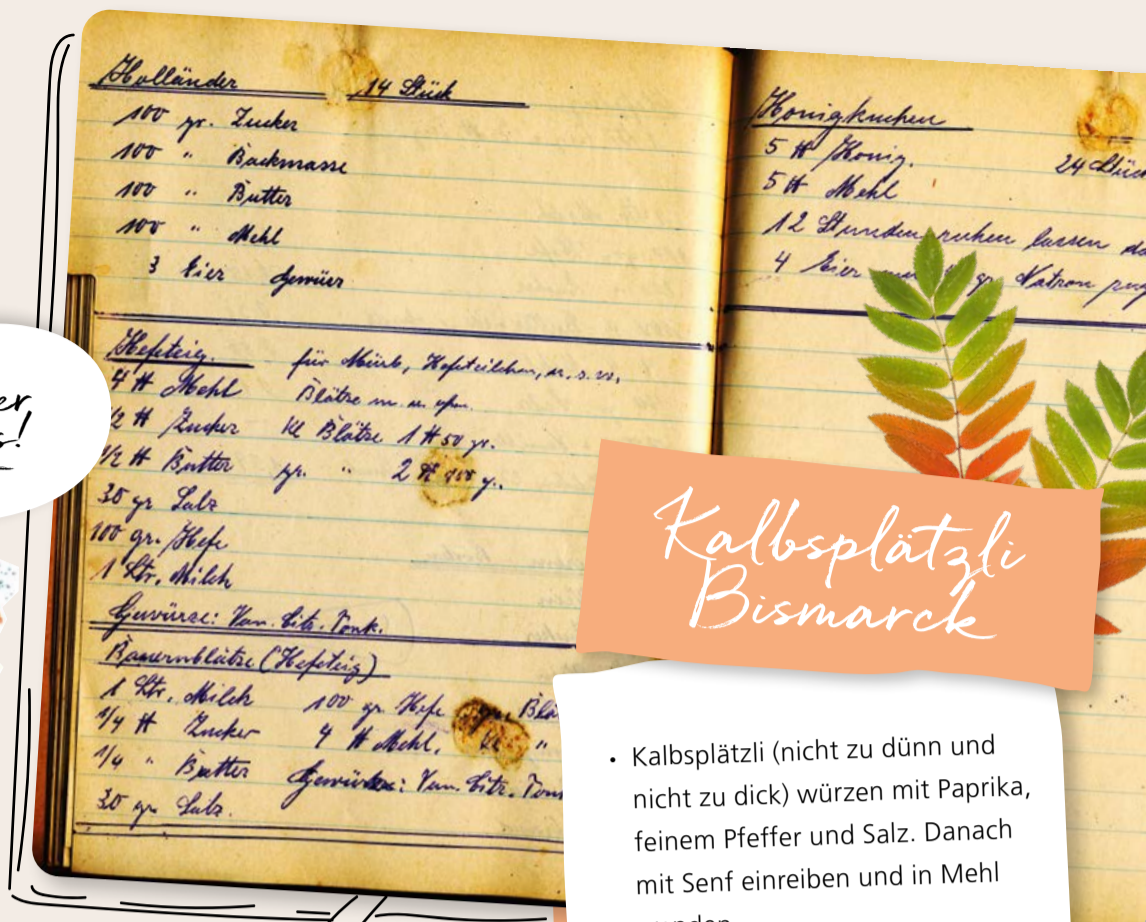 Holländer 14 Stück
100 gr. Zucker
100 " Backmasse
100 " Butter
100 " Mehl
3 Eier Gewürz
Hefeteig. für Mürb, Hefeteilchen, u.s.w.
4 ℔ Mehl Blätze
1/2 ℔ Zucker kl Blätze 1 ℔ 50 gr.
1/2 ℔ Butter gr. " 2 ℔
30 gr Salz
100 gr. Hefe
1 Ltr. Milch
Gewürze: Van. Citr. Tonk.
Bauernblätze (Hefeteig)
1 Ltr. Milch 100 gr. Hefe
1/4 ℔ Zucker 4 ℔ Mehl.
1/4 " Butter Gewürze: Van. Citr.
30 gr Salz.
Honigkuchen
5 ℔ Honig. 24 Stück
5 ℔ Mehl
12 Stunden ruhen lassen
4 Eier Natron
Kalbsplätzli
Bismarck
• Kalbsplätzli (nicht zu dünn und
nicht zu dick) würzen mit Paprika,
feinem Pfeffer und Salz. Danach
mit Senf einreiben und in Mehl